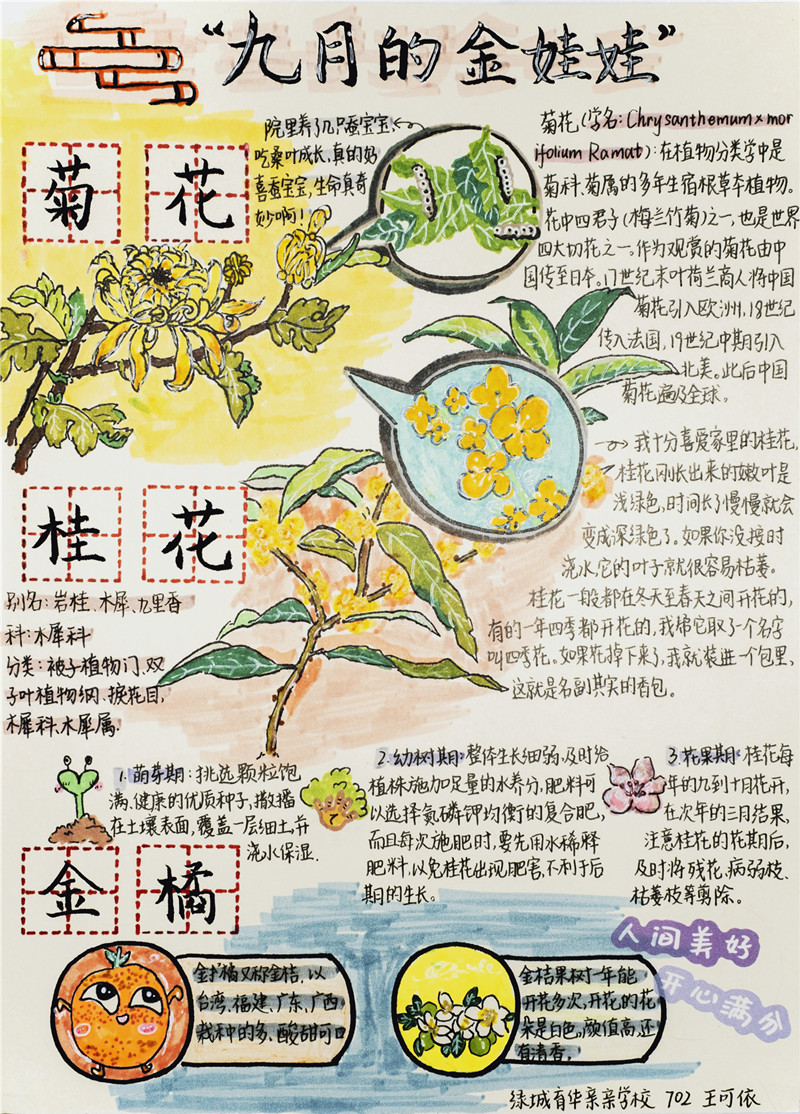 “九月的金娃娃”
院里养了几只蚕宝宝,
吃桑叶成长,真的好
喜蚕宝宝,生命真奇
妙啊!
菊花
菊花(学名:Chrysanthemum×mor
ifolium Ramat):在植物分类学中是
菊科、菊属的多年生宿根草本植物。
花中四君子(梅兰竹菊)之一,也是世界
四大切花之一。作为观赏的菊花由中
国传至日本。17世纪末叶荷兰商人将中国
菊花引入欧洲,18世纪
传入法国,19世纪中期引入
北美。此后中国
菊花遍及全球。
我十分喜爱家里的桂花,
桂花刚长出来的嫩叶是
浅绿色,时间长了慢慢就会
变成深绿色了。如果你没按时
浇水它的叶子就很容易枯萎。
桂花一般都在冬天至春天之间开花的,
有的一年四季都开花的,我帮它取了个名字
叫四季花。如果花掉下来了,我就装进一个包里,
这就是名副其实的香包。
桂花
别名:岩桂、木犀、九里香
科:木犀科
分类:被子植物门、双
子叶植物纲、捩花目、
木犀科、木犀属.
1.萌芽期:挑选颗粒饱
满、健康的优质种子,撒播
在土壤表面,覆盖一层细土,并
浇水保湿.
2.幼树期:整体生长细弱,及时给
植株施加足量的水养分,肥料可
以选择氮磷钾均衡的复合肥,
而且每次施肥时,要先用水稀释
肥料,以免桂花出现肥害,不利于后
期的生长。
3.花果期:桂花每
年的九到十月花开,
在次年的三月结果,
注意桂花的花期后,
及时将残花,病弱枝、
枯萎枝等剪除。
金橘
金橘又称金桔,以
台湾、福建、广东、广西
栽种的多、酸甜可口
金桔果树一年能
开花多次,开花的花
朵是白色,颜值高,还
有清香。
人间美好
开心满分
绿城育华亲亲学校 702 王可依